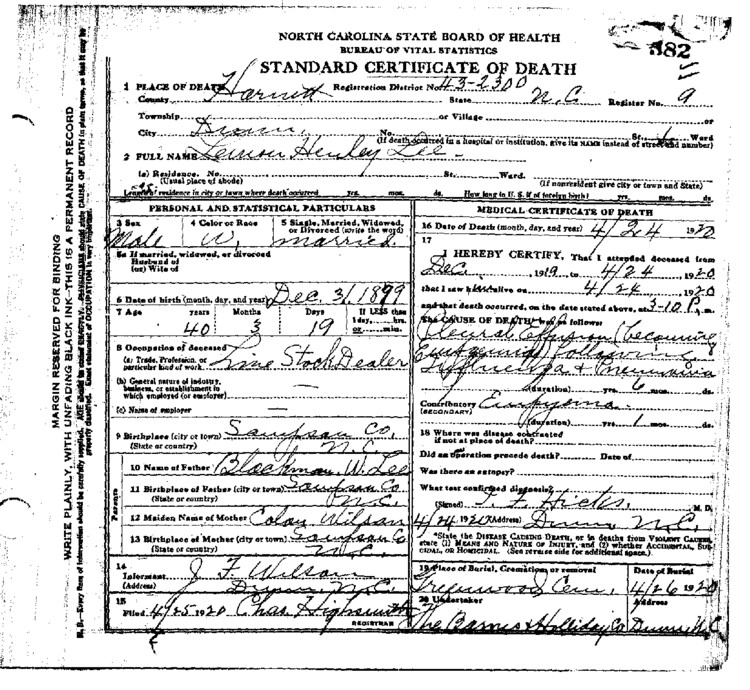 NORTH CAROLINA STATE BOARD OF HEALTH
BUREAU OF VITAL STATISTICS
STANDARD CERTIFICATE OF DEATH
882
1 PLACE OF DEATH Harnett Registration District No. 43-2300
County State N.C. Register No. 9
Township or Village or
City Dunn, No. St. Ward
(If death occurred in a hospital or institution, give its NAME instead of street and number)
2 FULL NAME Henley Lee
(a) Residence. No. St. Ward.
(Usual place of abode) (If nonresident give city or town and State)
Length of residence in city or town where death occurred yrs. mos. ds. How long in U. S. if of foreign birth? yrs. mos. ds.
PERSONAL AND STATISTICAL PARTICULARS
3 Sex 4 Color or Race 5 Single, Married, Widowed,
or Divorced (write the word)
Male W. married.
5a If married, widowed, or divorced
Husband of
(or) Wife of
6 Date of birth (month, day, and year) Dec, 31, 1899
7 Age years Months Days If LESS than
1 day, hrs.
40 3 19 or min.
8 Occupation of deceased
(a) Trade, Profession, or
particular kind of work Live Stock Dealer
(b) General nature of industry,
business, or establishment in
which employed (or employer)
(c) Name of employer
9 Birthplace (city or town) Sampson Co,
(State or country) N.C.
Parents
10 Name of Father Blackman W. Lee
11 Birthplace of Father (city or town) Sampson Co
(State or country) N.C.
12 Maiden Name of Mother Wilson
13 Birthplace of Mother (city or town) Sampson Co
(State or country) N.C.
14
Informant J F Wilson
(Address) Dunn N.C.
15
Filed 4/25 1920 Chas. Highsmith
REGISTRAR
MEDICAL CERTIFICATE OF DEATH
16 Date of Death (month, day, and year) 4/24 1920
17
I HEREBY CERTIFY, That I attended deceased from
Dec, 1919, to 4/24, 1920
that I saw alive on 4/24, 1920
and that death occurred, on the date stated above, at 3-10 P. m.
The CAUSE OF DEATH was as follows:
Pleural Effusion (becoming
following
Influenza & Pneumonia
(duration) yrs. 6 mos. ds.
Contributory Empyema
(SECONDARY)
(duration) yrs. 1 mos. ds.
18 Where was disease contracted
if not at place of death?
Did an operation precede death? Date of
Was there an autopsy?
What test confirmed diagnosis?
(Signed) Hicks, M. D.
4/24 1920 (Address) Dunn N.C.
*State the DISEASE CAUSING DEATH, or in deaths from VIOLENT CAUSES,
state (1) MEANS AND NATURE OF INJURY, and (2) whether ACCIDENTAL, SUI-
CIDAL, OR HOMICIDAL. (See reverse side for additional space.)
19 Place of Burial, Cremation, or removal Date of Burial
Greenwood Cem, 4/26 1920
20 Undertaker Address
The Barnes & Holliday Co Dunn, N.C.
MARGIN RESERVED FOR BINDING
WRITE PLAINLY, WITH UNFADING BLACK INK—THIS IS A PERMANENT RECORD
N. B.—Every item of information should be carefully supplied. AGE should be stated EXACTLY. PHYSICIANS should state CAUSE OF DEATH in plain terms, so that it may be
properly classified. Exact statement of OCCUPATION is very important.